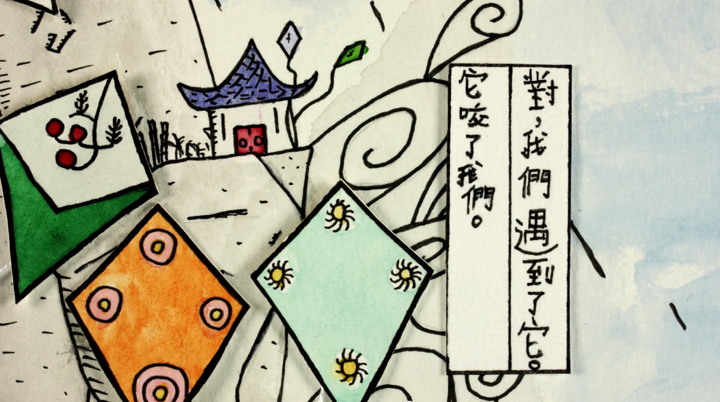 對，我們遇到了它。
它咬了我們。